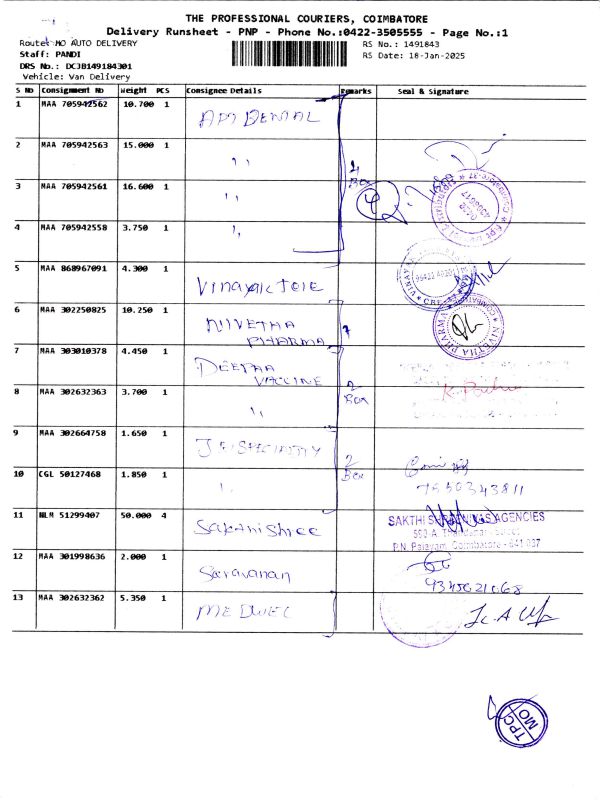 THE PROFESSIONAL COURIERS, COIMBATORE
Delivery Runsheet - PNP - Phone No.:0422-3505555 - Page No.:1
Route: MO AUTO DELIVERY
RS No.: 1491843
Staff: PANDI
RS Date: 18-Jan-2025
DRS No.: DCJB149184301
Vehicle: Van Delivery
S No Consignment No Weight PCS Consignee Details Remarks Seal & Signature
1 MAA 705942562 10.700 1
2 MAA 705942563 15.000 1 ,,
3 MAA 705942561 16.600 1 ,,
4 Box
4
4 MAA 705942558 3.750 1 ,,
5 MAA 868967091 4.300 1
6 MAA 302250825 10.250 1 NIVETHA
PHARMA
NIVETHA PHARMA
7 MAA 303010378 4.450 1 DEEPAA
VACCINE
2
Box
8 MAA 302632363 3.700 1 ,,
9 MAA 302664758 1.650 1
2
Box
10 CGL 50127468 1.850 1
7550343811
11 NLM 51299407 50.000 4 Sakthi Shree
AGENCIES
P.N. Palayam, Coimbatore - 641 037
12 MAA 301998636 2.000 1 Saravanan
13 MAA 302632362 5.350 1
TPC
MO